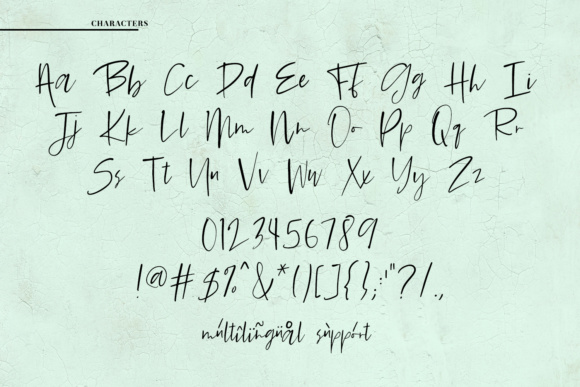 CHARACTERS
Aa Bb Cc Dd Ee Ff Gg Hh Ii
Jj Kk Ll Mm Nn Oo Pp Qq Rr
Ss Tt Uu Vv Ww Xx Yy Zz
0123456789
!@#$%^&*()[]{};:'"?/.,
múltîlïñgüål sùppórt